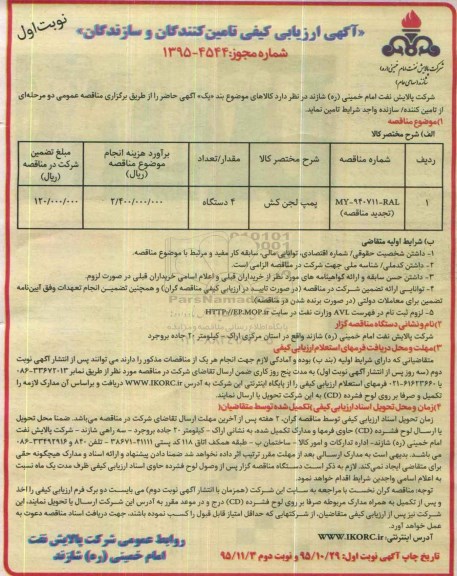 نوبت اول
«آگهی ارزیابی کیفی تامین‌کنندگان و سازندگان»
شماره مجوز: ۴۵۴۴-۱۳۹۵
شرکت پالایش نفت امام خمینی (ره)
شازند (سهامی عام)
شرکت پالایش نفت امام خمینی (ره) شازند در نظر دارد کالاهای موضوع بند «یک» آگهی حاضر را از طریق برگزاری مناقصه عمومی دو مرحله‌ای
از تامین کننده/ سازنده واجد شرایط تامین نماید.
۱) موضوع مناقصه
الف) شرح مختصر کالا
ردیف شماره مناقصه شرح مختصر کالا مقدار/تعداد برآورد هزینه انجام موضوع مناقصه (ریال) مبلغ تضمین شرکت در مناقصه (ریال)
۱ MY-۹۴۰۷۱۱-RAL (تجدید مناقصه) پمپ لجن کش ۴ دستگاه ۲/۴۰۰/۰۰۰/۰۰۰ ۱۲۰/۰۰۰/۰۰۰
ب) شرایط اولیه متقاضی
۱- داشتن شخصیت حقوقی/ شماره اقتصادی، توانایی مالی، سابقه کار مفید و مرتبط با موضوع مناقصه.
۲- داشتن کدملی/ شناسه ملی جهت شرکت در مناقصه الزامی است.
۳- داشتن حسن سابقه و ارائه گواهینامه های مورد نظر از خریداران قبلی و اعلام اسامی خریداران قبلی در صورت لزوم.
۴- توانایی ارائه تضمین شرکت در مناقصه (در صورت تایید در ارزیابی کیفی مناقصه گران) و همچنین تضمین انجام تعهدات وفق آیین‌نامه
تضمین برای معاملات دولتی (در صورت برنده شدن در مناقصه)
۵- لزوم ثبت نام در فهرست AVL وزارت نفت در سایت HTTP://EP.MOP.ir
۲) نام و نشانی دستگاه مناقصه گزار
شرکت پالایش نفت امام خمینی (ره) شازند واقع در استان مرکزی اراک - کیلومتر ۲۰ جاده بروجرد
۳) مهلت و محل دریافت فرمهای استعلام ارزیابی کیفی
متقاضیانی که دارای شرایط اولیه (بند ب) بوده و آمادگی لازم جهت انجام هر یک از مناقصات مذکور را دارند می توانند پس از انتشار آگهی نوبت
دوم (سه روز پس از انتشار آگهی نوبت اول) به مدت پنج روز کاری ضمن ارسال تقاضای شرکت در مناقصه مورد نظر از طریق نمابر ۳۳۶۷۲۰۱۳-۰۸۶
یا ۶۱۶۲۳۳۶۰-۰۲۱ فرمهای استعلام ارزیابی کیفی را از پایگاه اینترنتی این شرکت به آدرس WWW.IKORC.ir دریافت و براساس آن مدارک لازمه را
تکمیل و صرفا بر روی لوح فشرده (CD) به این شرکت تحویل یا ارسال نمایند.
۴) زمان و محل تحویل اسناد ارزیابی کیفی (تکمیل شده توسط متقاضیان)
زمان تحویل اسناد ارزیابی کیفی توسط مناقصه گران، ۲ هفته پس از آخرین مهلت ارسال تقاضای شرکت در مناقصه می‌باشد. ضمنا محل تحویل
یا ارسال لوح فشرده (CD) حاوی فرمها و مدارک تکمیل شده، به نشانی اراک - کیلومتر ۲۰ جاده بروجرد - سه راهی شازند - شرکت پالایش نفت
امام خمینی (ره) شازند- اداره تدارکات و امور کالا - ساختمان ب - طبقه همکف اتاق ۱۱۸ کد پستی ۴۱۱۱۱-۳۸۶۷۱ - تلفن ۸۴۰ و ۳۳۴۹۲۹۱۶-۰۸۶
می باشد. بدیهی است به مدارک ارسالی بعد از مهلت مقرر ترتیب اثر داده نخواهد شد ضمنا دادن پیشنهاد و ارائه اسناد و مدارک هیچگونه حقی
برای متقاضی ایجاد نمی‌کند. لازم به ذکر است دستگاه مناقصه گزار پس از وصول لوح فشرده حاوی اسناد ارزیابی کیفی ظرف مدت یک ماه نسبت
به اعلام اسامی واجدین شرایط اقدام خواهد نمود.
توجه: مناقصه گران نخست با مراجعه به سایت این شرکت (همزمان با انتشار آگهی نوبت دوم) می بایست دو برگ فرم ارزیابی کیفی را اخذ
و پس از تکمیل به همراه مدارک مربوطه صرفا بر روی لوح فشرده (CD) درج و در موعد مقرر به آدرس این شرکت ارسال یا تحویل نمایند، این
شرکت نیز پس از ارزیابی کیفی متقاضیان، از شرکتهایی که حداقل امتیاز قابل قبول را کسب نموده باشند، جهت دریافت اسناد مناقصه دعوت به
عمل خواهد آورد.
آدرس اینترنتی: WWW.IKORC.ir
تاریخ چاپ آگهی نوبت اول: ۹۵/۱۰/۲۹ و نوبت دوم ۹۵/۱۱/۳
روابط عمومی شرکت پالایش نفت
امام خمینی (ره) شازند